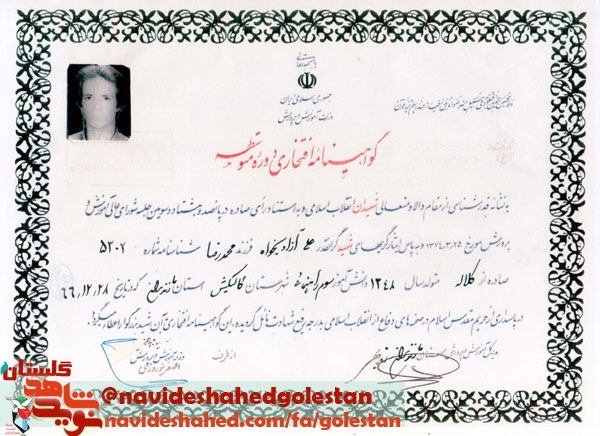 باسمه تعالی
جمهوری اسلامی ایران
وزارت آموزش و پرورش
گواهینامهٔ افتخاری دوره متوسطه
به نشانه قدرشناسی از مقام والا و متعالی شهیدان انقلاب اسلامی و به استناد رأی صادره در پانصد و هشتاد و سومین جلسه شورای عالی آموزش و
پرورش مورخ ۱۳۷۴٫۳٫۲۵ و به پاس ایثارگریهای شهید گرانقدر علی آزادیخواه فرزند محمدرضا شناسنامه شماره ۵۳۰۲
صادره از کلاله متولد سال ۱۳۴۸ دانش آموز سوم راهنمائی شهرستان گالیکش استان مازندران که در تاریخ ۶۶٫۱۲٫۲۸
در پاسداری از حریم مقدس اسلام در صحنه های دفاع از انقلاب اسلامی به درجه رفیع شهادت نائل گردیده، این گواهینامهٔ افتخاری آن شهید زنده گواه را عطا میگردد.
مدیرکل آموزش و پرورش استان مازندران
از طرف
وزیر آموزش و پرورش
گلستان
نوید شاهد
@navideshahedgolestan
navideshahed.com/fa/golestan